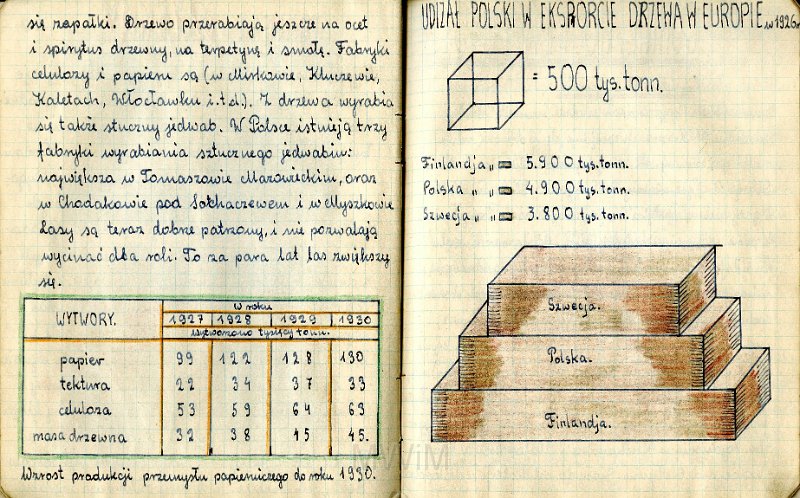 się zapałki. Drzewo przerabiają jeszcze na ocet
i spirytus drzewny, na terpetynę i smołę. Fabryki
celulozy i papieru są (w Mirkowie, Kluczewie,
Kaletach, Włocławku i.t.d.). Z drzewa wyrabia
się także stuczny jedwab. W Polsce istnieją trzy
fabryki wyrabiania sztucznego jedwabiu:
największa w Tomaszowie Mazowieckim, oraz
w Chodakowie pod Sochaczewem i w Myszkowie
Lasy są teraz dobrze patrzony, i nie pozwalają
wycinać dla roli. To za para lat las zwiększy
się.
WYTWORY. W roku
1927 1928 1929 1930
Wytworzono tysięcy tonn.
papier 99 122 128 130
tektura 22 34 37 33
celuloza 53 59 64 63
masa drzewna 32 38 45 45.
Wzrost produkcji przemysłu papierniczego do roku 1930.
UDIZAŁ POLSKI W EKSPORCIE DRZEWA W EUROPIE w 1926r
= 500 tys. tonn.
Finlandja „ = 5.900 tys. tonn.
Polska „ „ = 4.900 tys. tonn.
Szwecja „ „ = 3.800 tys. tonn.
Szwecja.
Polska.
Finlandja.
MWiM